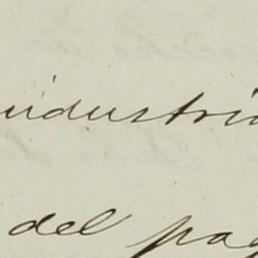 industria
del pag